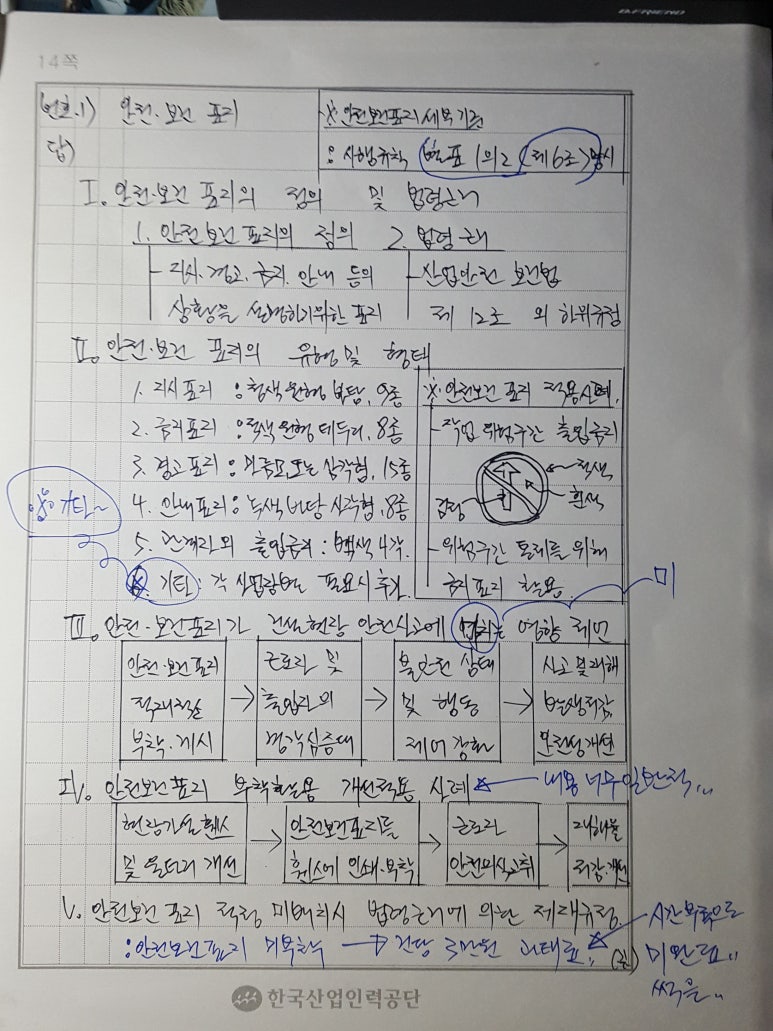 B.FRIEND
14쪽
번호.1) 안전·보건 표지
※안전보건표지세부기준
답)
: 시행규칙 별표 1의2 <제6조> 명시
I. 안전·보건 표지의 정의 및 법령근거
1. 안전보건표지의 정의 2. 법령근거
- 지시.경고.금지.안내 등의 - 산업안전 보건법
상황을 설명하기위한 표지 제 12조 외 하위규정
II. 안전·보건 표지의 유형 및 형태
1. 지시표지 : 청색 원형 바탕, 9종
※안전보건 표지 적용사례.
2. 금지표지 : 적색 원형 테두리, 8종
- 작업 위험구간 출입금지
3. 경고표지 : 마름모 또는 삼각형, 15종
적색
4. 안내표지 : 녹색 바탕 사각형, 8종
검정
흰색
양) 기타~
5. 관계자 외 출입금지 : 백색 4각.
- 위험구간 통제를 위해
6. 기타 : 각 사업장별 필요시 추가
금지표지 활용.
미
III. 안전·보건표지가 건설현장 안전사고에 미치는 영향 제언
안전·보건표지
적재적소
부착·게시
→
근로자 및
출입자의
경각심증대
→
불안전 상태
및 행동
제어 강화
→
사고 및 재해
발생저감,
안전성개선
IV. 안전보건표지 부착활용 개선적용 사례 ☆ ← 내용 너무 일반적..
현장가설휀스
및 울타리 개선
→
안전보건표지를
휀스에 인쇄·부착
→
근로자
안전의식고취
→
재해율
저감·개선
V. 안전보건 표지 적정 미배치시 법령근거에 의한 제재규정
: 안전보건표지 미부착 → 건당 3만원 과태료. ☆
(끝)
시간부족으로
미완료..
썩을..
한국산업인력공단